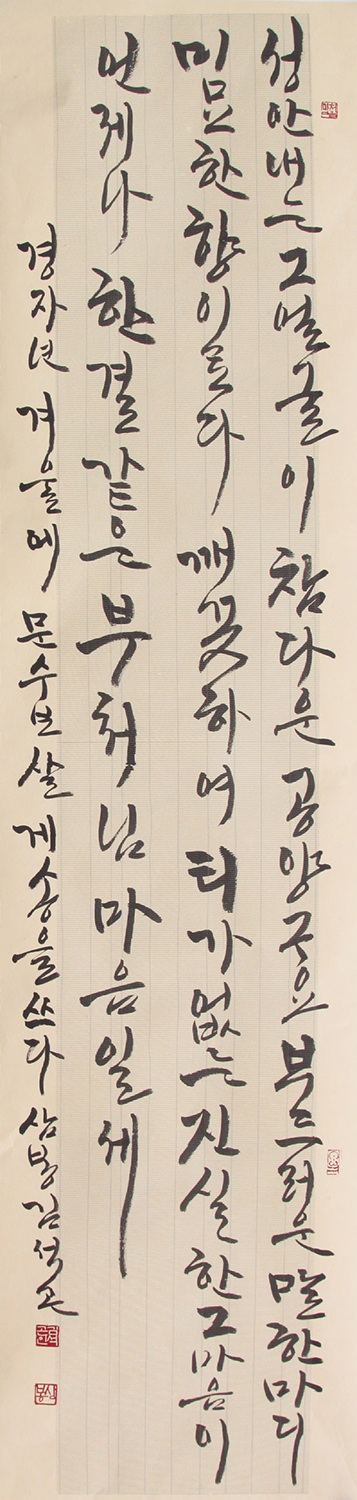 성 안내는 그 얼굴이 참다운 공양구요 부드러운 말 한마디
미묘한 향이로다 깨끗하여 티가 없는 진실한 그 마음이
언제나 한결같은 부처님 마음일세
경자년 겨울에 문수보살 게송을 쓰다 삼봉